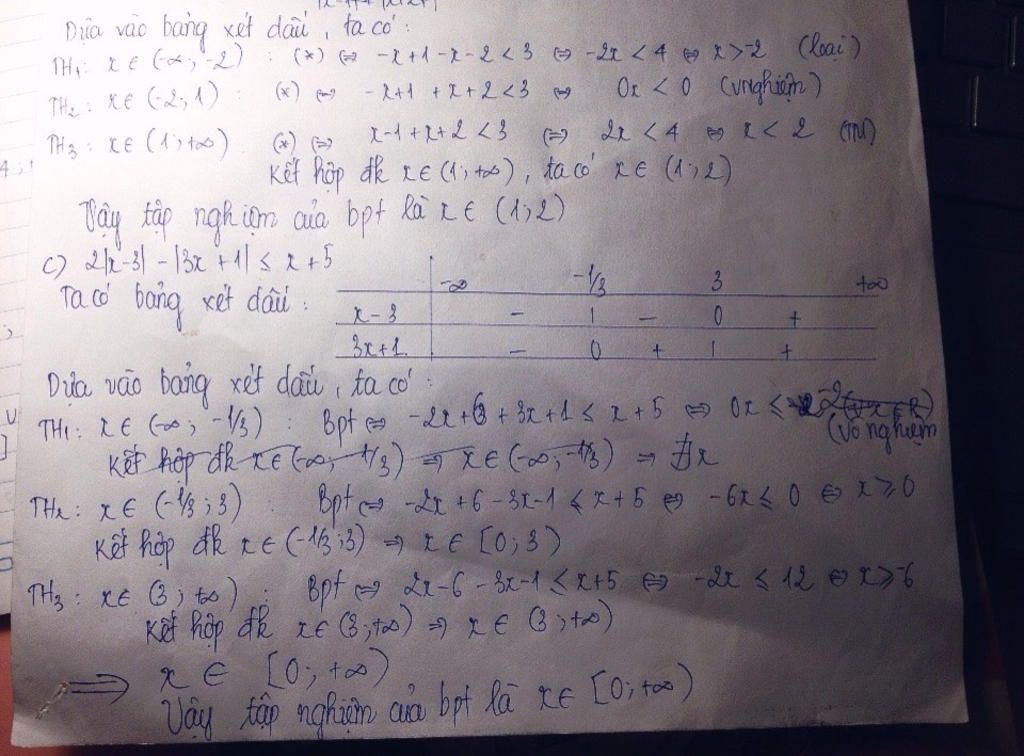 Dựa vào bảng xét dấu, ta có:
TH1: x ∈ (-∞; -2) : (*) ⇔ -x+1-x-2 < 3 ⇔ -2x < 4 ⇔ x > -2 (loại)
TH2: x ∈ (-2; 1) : (*) ⇔ -x+1+x+2 < 3 ⇔ 0x < 0 (vnghiệm)
TH3: x ∈ (1; +∞) (*) ⇔ x-1+x+2 < 3 ⇔ 2x < 4 ⇔ x < 2 (TM)
Kết hợp đk x ∈ (1; +∞), ta có x ∈ (1; 2)
Vậy tập nghiệm của bpt là x ∈ (1; 2)
c) 2|x-3| - |3x+1| ≤ x+5
Ta có bảng xét dấu:
-∞ -1/3 3 +∞
x-3 - | - 0 +
3x+1 - 0 + | +
Dựa vào bảng xét dấu, ta có:
TH1: x ∈ (-∞; -1/3) : Bpt ⇔ -2x+6+3x+1 ≤ x+5 ⇔ 0x ≤ -2
(vô nghiệm
Kết hợp đk x ∈ (-∞; -1/3) ⇒ x ∈ (-∞; -1/3) ⇒ ∄x
TH2: x ∈ (-1/3; 3) : Bpt ⇔ -2x+6-3x-1 ≤ x+5 ⇔ -6x ≤ 0 ⇔ x ≥ 0
Kết hợp đk x ∈ (-1/3; 3) ⇒ x ∈ [0; 3)
TH3: x ∈ (3; +∞) : Bpt ⇔ 2x-6-3x-1 ≤ x+5 ⇔ -2x ≤ 12 ⇔ x ≥ -6
Kết hợp đk x ∈ (3; +∞) ⇒ x ∈ (3; +∞)
⇒ x ∈ [0; +∞)
Vậy tập nghiệm của bpt là x ∈ [0; +∞)